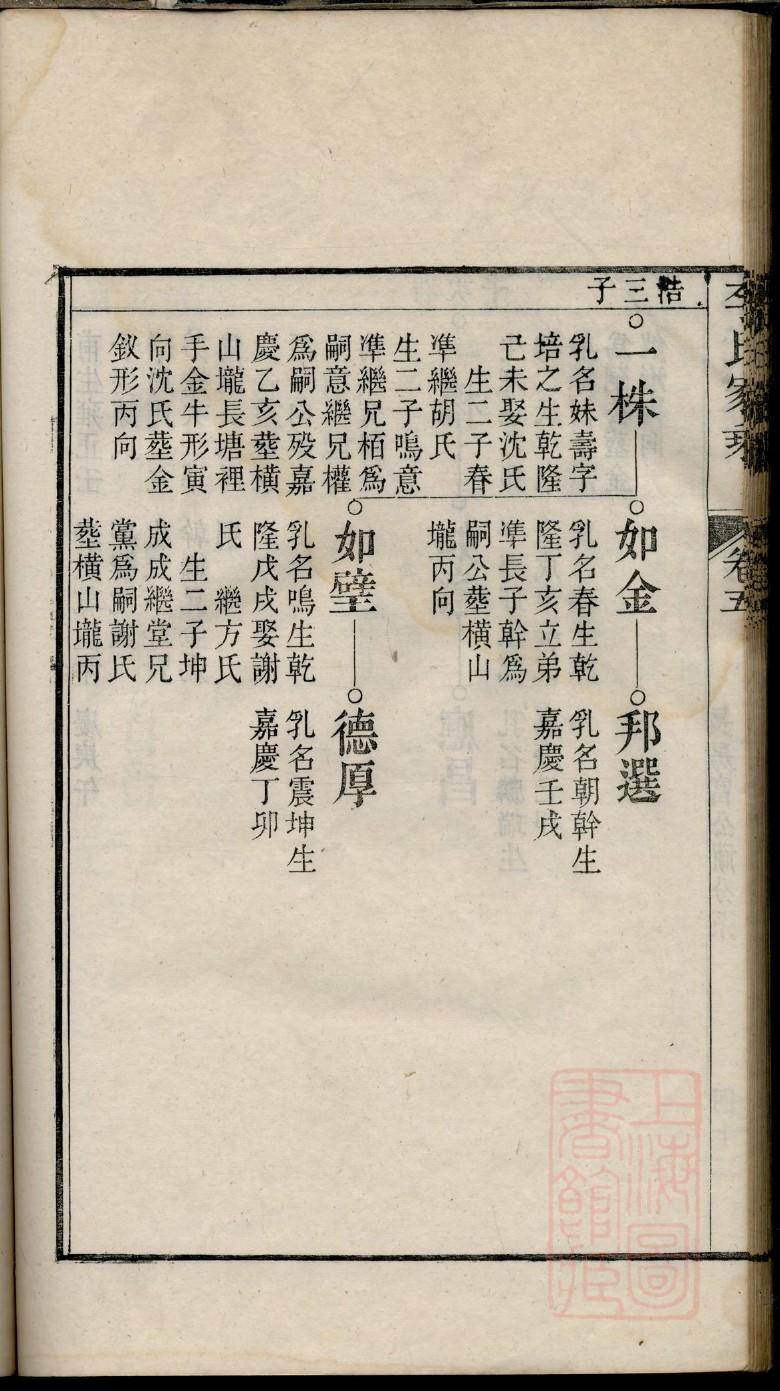 李氏家乘
卷五
浩三子
一株
乳名妹壽字
培之生乾隆
己未娶沈氏
生二子春
準繼胡氏
生二子鳴意
準繼兄栢爲
嗣意繼兄權
爲嗣公殁嘉
慶乙亥塟橫
山壠長塘裡
手金牛形寅
向沈氏塟金
釵形丙向
如金
乳名春生乾
隆丁亥立弟
準長子幹爲
嗣公塟橫山
壠丙向
如璧
乳名鳴生乾
隆戊戌娶謝
氏　繼方氏
生二子坤
成成繼堂兄
黨爲嗣謝氏
塟橫山壠丙
邦選
乳名朝幹生
嘉慶壬戌
德厚
乳名震坤生
嘉慶丁卯
上海圖
書館藏